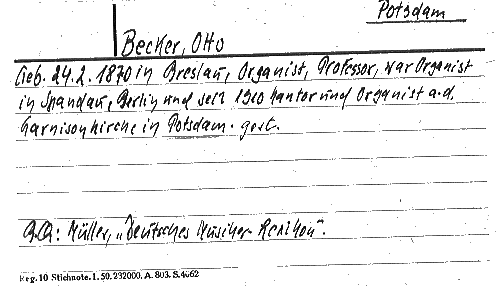 Potsdam
Becker, Otto
Geb. 24.2.1870 in Breslau, Organist, Professor, war Organist
in Spandau, Berlin und seit 1910 Kantor und Organist a.d.
Garnisonkirche in Potsdam. gest.
Müller, „Deutsches Musiker-Lexikon".
Reg. 10 Stichnote. 1. 50. 232000. A. 803. S. 4662